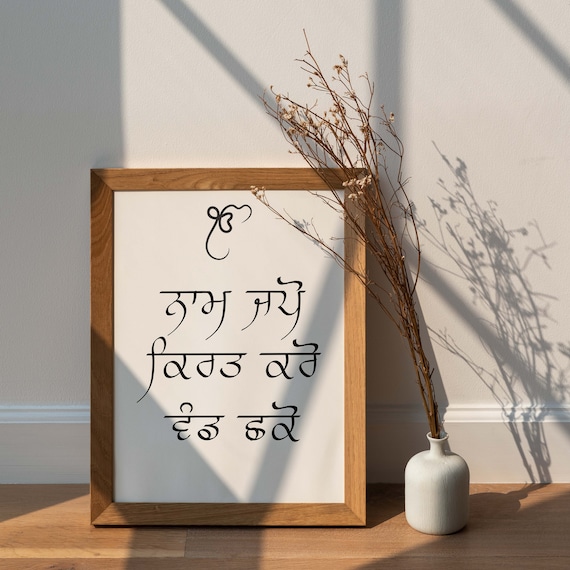 ੴ
ਨਾਮ ਜਪੋ
ਕਿਰਤ ਕਰੋ
ਵੰਡ ਛਕੋ